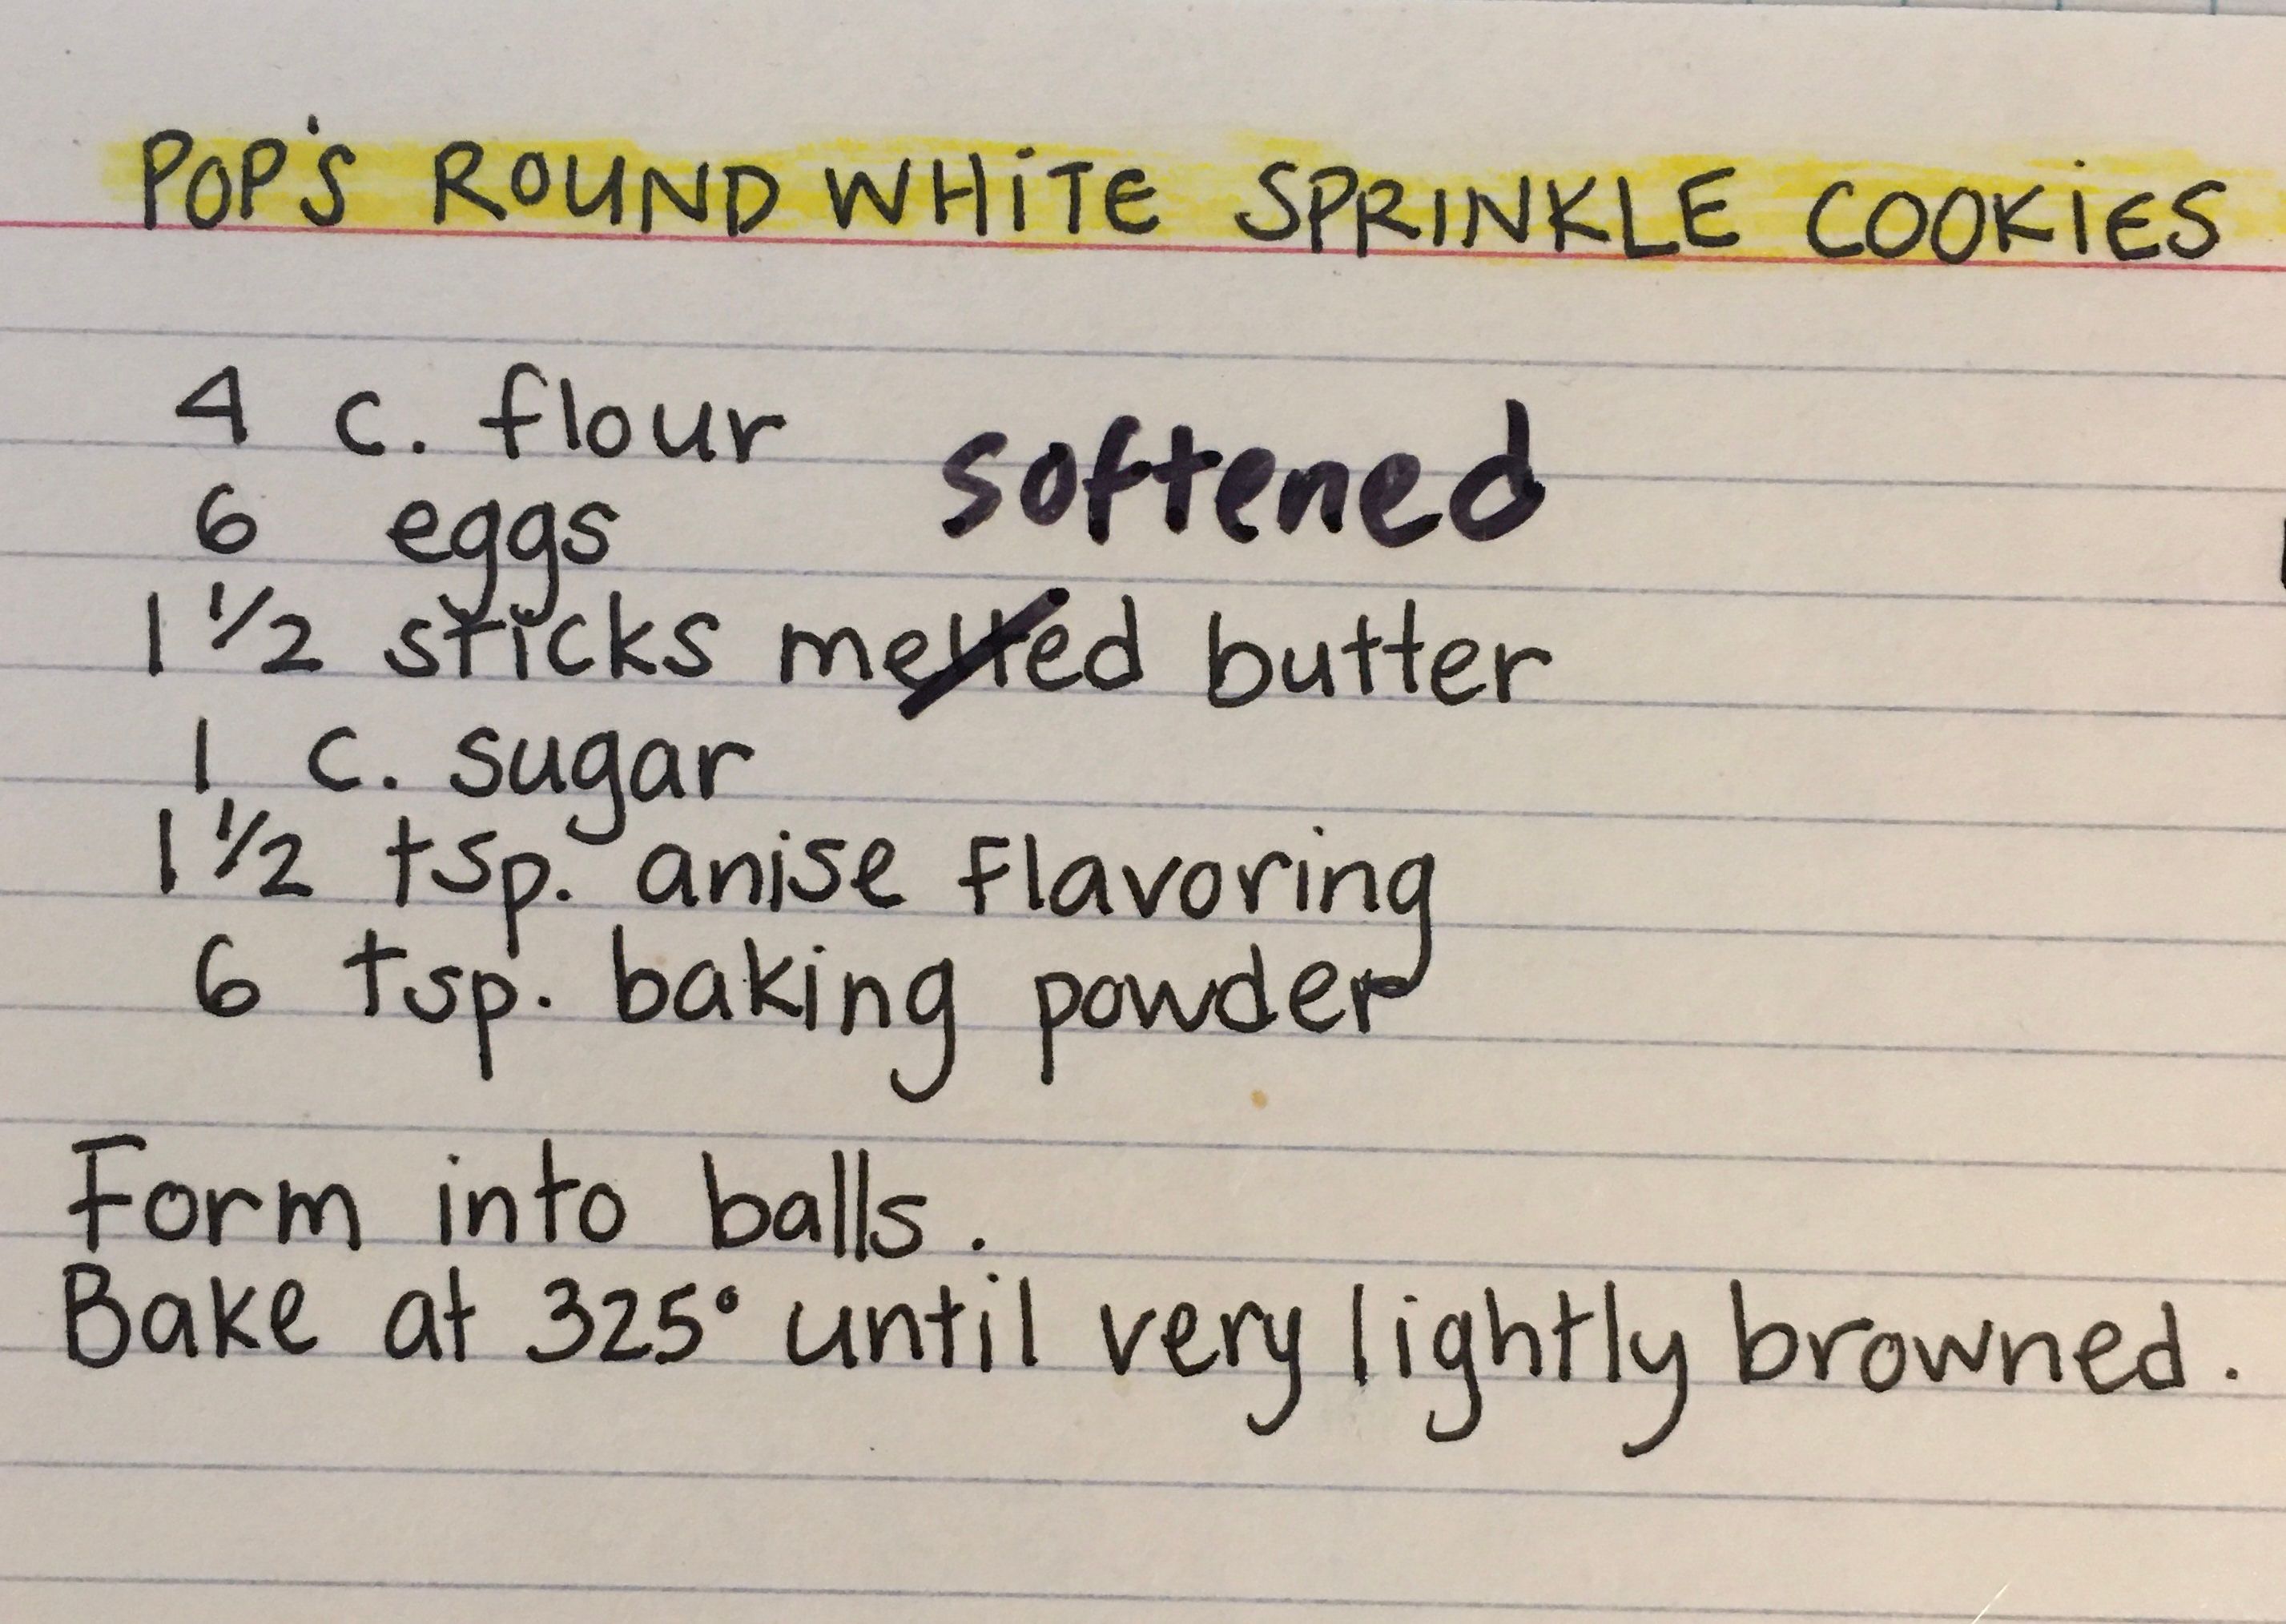 POP'S ROUND WHITE SPRINKLE COOKIES
4 c. flour
softened
6 eggs
1 1/2 sticks melted butter
1 c. sugar
1 1/2 tsp. anise flavoring
6 tsp. baking powder
Form into balls.
Bake at 325° until very lightly browned.